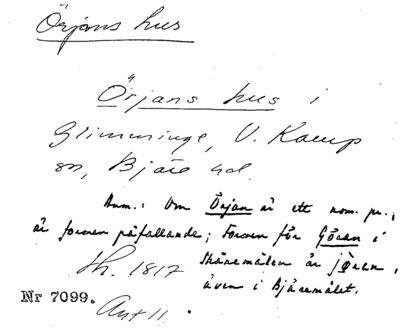 Örjans hus
Örjans hus i
Glimminge, V. Karup
sn, Bjäre hd.
Anm.: Om Örjan är ett nom. pr.,
är formen påfallande; Formen för Göran i
Skånemålen är jören,
även i Bjäremålet.
th. 1817
Nr 7099.
Ant 11.